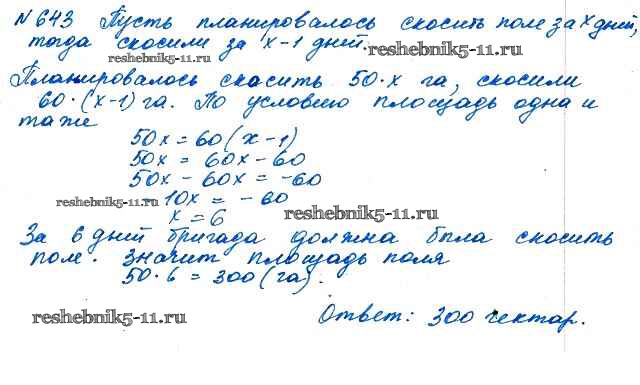 № 643 Пусть планировалось скосить поле за х дней,
тогда скосили за х-1 дней. reshebnik5-11.ru
reshebnik5-11.ru
Планировалось скасить 50·х га, скосили
60·(х-1) га. По условию площадь одна и
та же
50х = 60(х-1)
50х = 60х - 60
50х - 60х = -60
reshebnik5-11.ru 10х = -60
х = 6 reshebnik5-11.ru
За 6 дней бригада должна была скосить
поле. Значит площадь поля
50·6 = 300 (га).
reshebnik5-11.ru Ответ: 300 гектар.